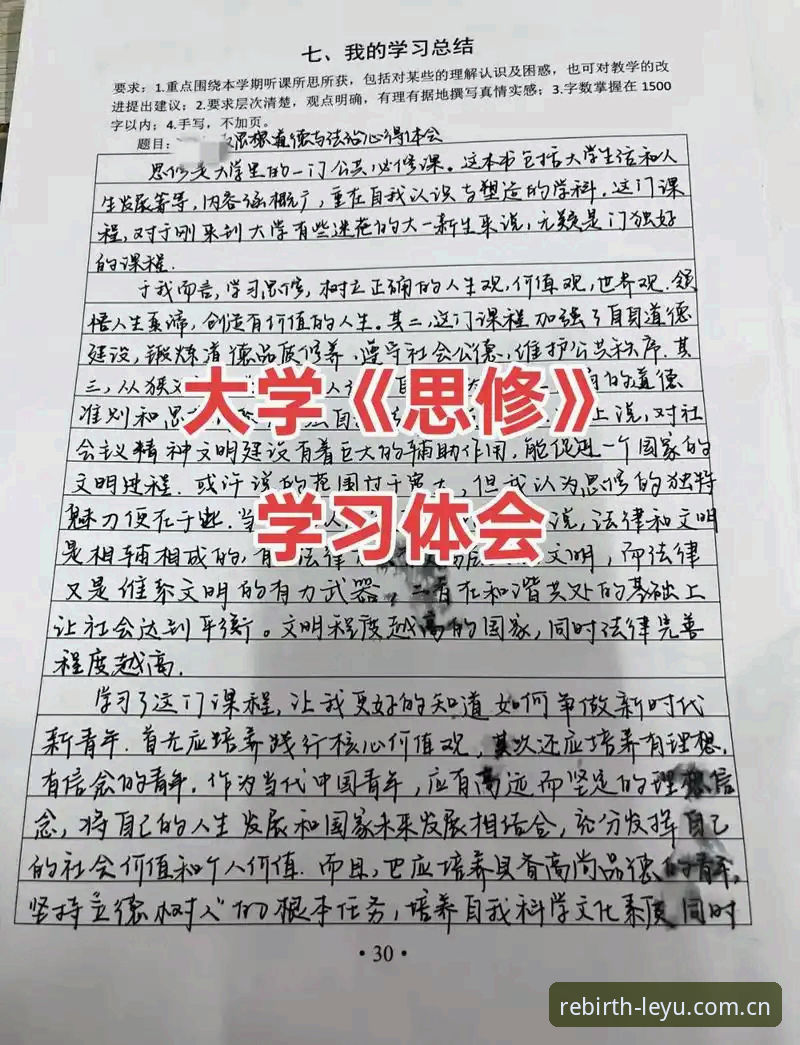 七、我的学习总结
要求：1.重点围绕本学期听课所思所获，包括对某些的理解认识及困惑，也可对教学的改
进提出建议；2.要求层次清楚，观点明确，有理有据地撰写真情实感；3.字数掌握在 1500
字以内；4.手写，不加页。
题目：思想道德与法治心得体会
思修是大学里的一门公共必修课。这本书包括大学生活和人
生发展等等，内容涵概广，重在自我认识与塑造的学科。这门课
程，对于刚来到大学有些迷茫的大一新生来说，无疑是门独好
的课程.
于我而言，学习思修，树立正确的人生观，价值观，世界观.领
悟人生真谛，创造有价值的人生。其二，这门课程加强了自身道德
建设，锻炼道德品质修养，遵守社会公德，维护公共秩序.其
三，从狭 的道德
大学《思修》
准则和思 上说，对社
会主义精神文明建设有着巨大的辅助作用，能促进一个国家的
文明进程.或许说的范围过于宽大，但我认为思修的独特
魅力便在于此.当 说，法律和文明
学习体会
是相辅相成的，有 法律 文明，而法律
又是维系文明的有力武器，二者在和谐共处的基础上
让社会达到平衡。文明程度越高的国家，同时法律完善
程度越高.
学习了这门课程，让我更好的知道如何争做新时代
新青年.首先应培养践行核心价值观，其次还应培养有理想，
有信念的青年.作为当代中国青年，应有高远而坚定的理想信
念，将自己的人生发展和国家未来发展相结合，充分发挥自己
的社会价值和个人价值.而且，也应培养具备高尚品德的青年，
坚持立德树人的根本任务，培养自我科学文化素质，同时
·30·
rebirth-leyu.com.cn